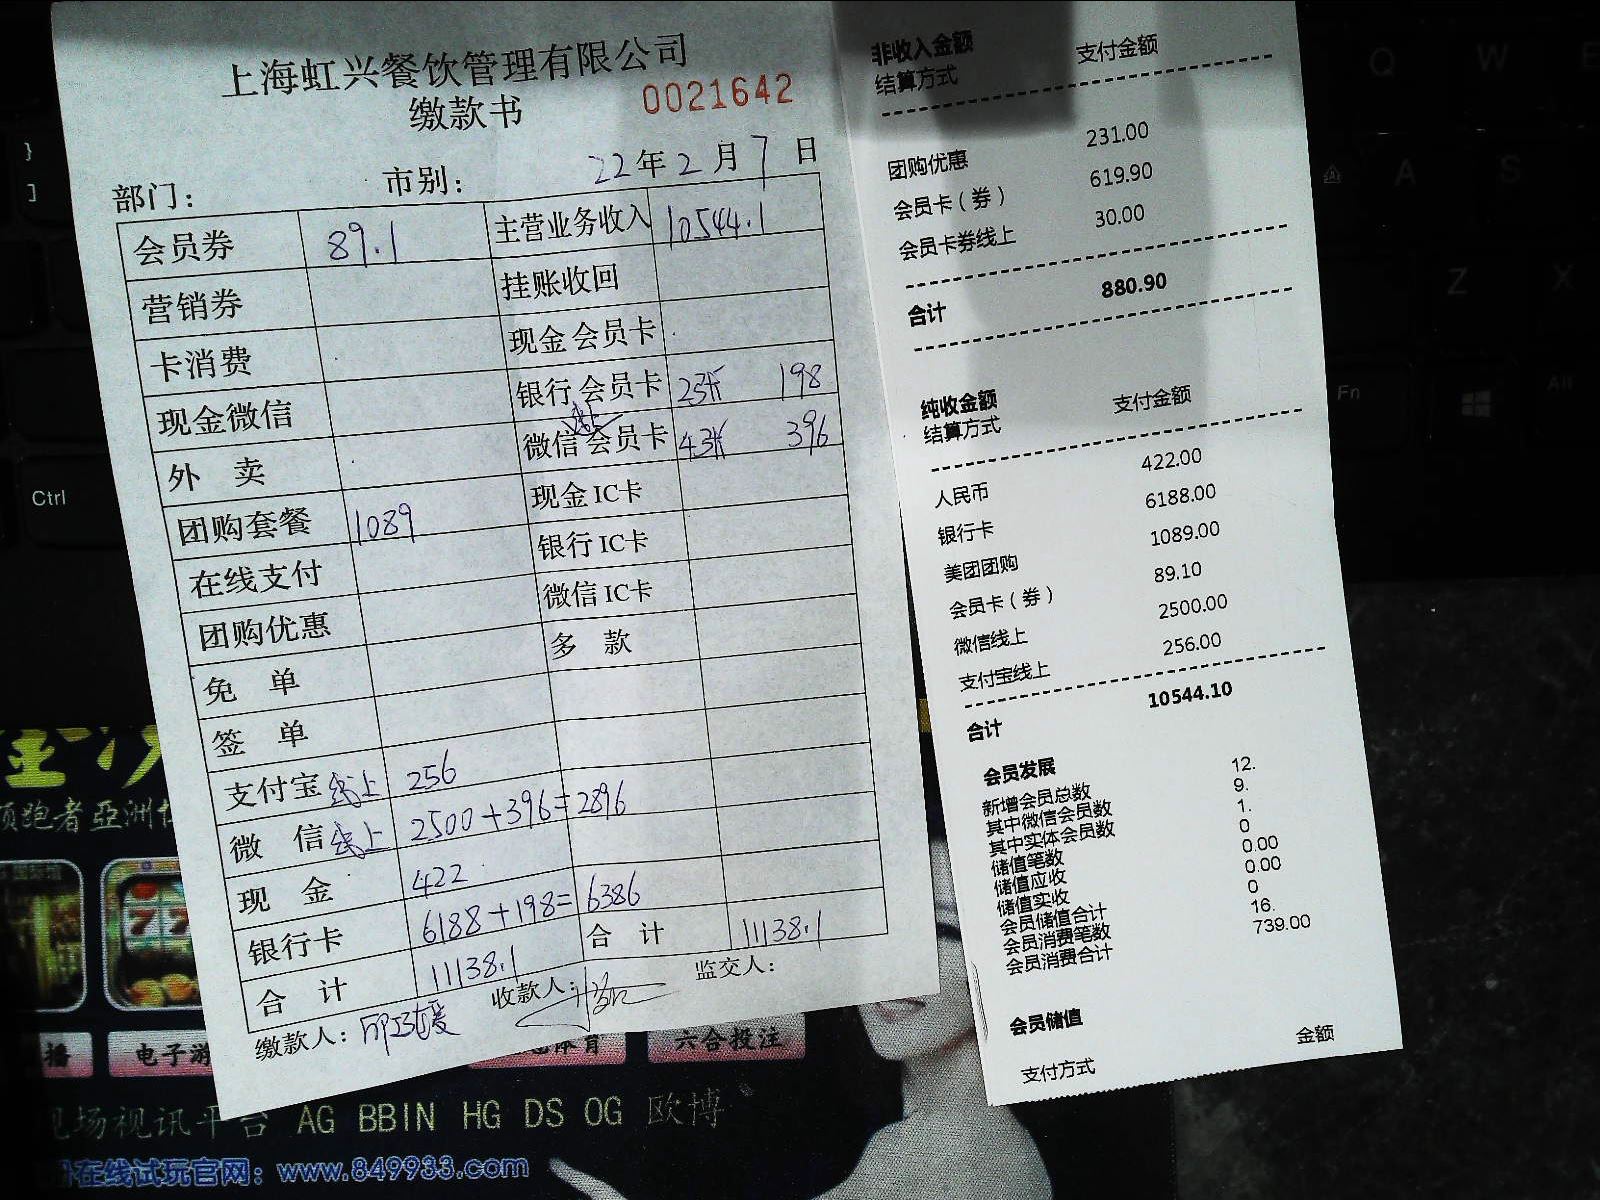 上海虹兴餐饮管理有限公司
缴款书 0021642
部门： 市别： 22年2月7日
会员券 89.1 主营业务收入 10544.1
营销券 挂账收回
卡消费 现金会员卡
现金微信 银行会员卡 2张 198
外 卖 微信会员卡 4张 396
团购套餐 1089 现金IC卡
在线支付 银行IC卡
团购优惠 微信IC卡
免 单 多 款
签 单
支付宝线上 256
微 信线上 2500+396=2896
现 金 422
银行卡 6188+198=6386
合 计 11138.1 合 计 11138.1
缴款人： 收款人： 监交人：
非收入金额
结算方式 支付金额
团购优惠 231.00
会员卡（券） 619.90
会员卡券线上 30.00
合计 880.90
纯收金额
结算方式 支付金额
人民币 422.00
银行卡 6188.00
美团团购 1089.00
会员卡（券） 89.10
微信线上 2500.00
支付宝线上 256.00
合计 10544.10
会员发展
新增会员总数 12.
其中微信会员数 9.
其中实体会员数 1.
储值笔数 0
储值应收 0.00
储值实收 0.00
会员储值合计 0
会员消费笔数 16.
会员消费合计 739.00
会员储值
支付方式 金额
}
]
Ctrl
Q W E
A S
Z X
Fn Alt
领跑者亞洲
播 电子游 体育 六合投注
现场视讯平台 AG BBIN HG DS OG 欧博
在线试玩官网：www.849933.com